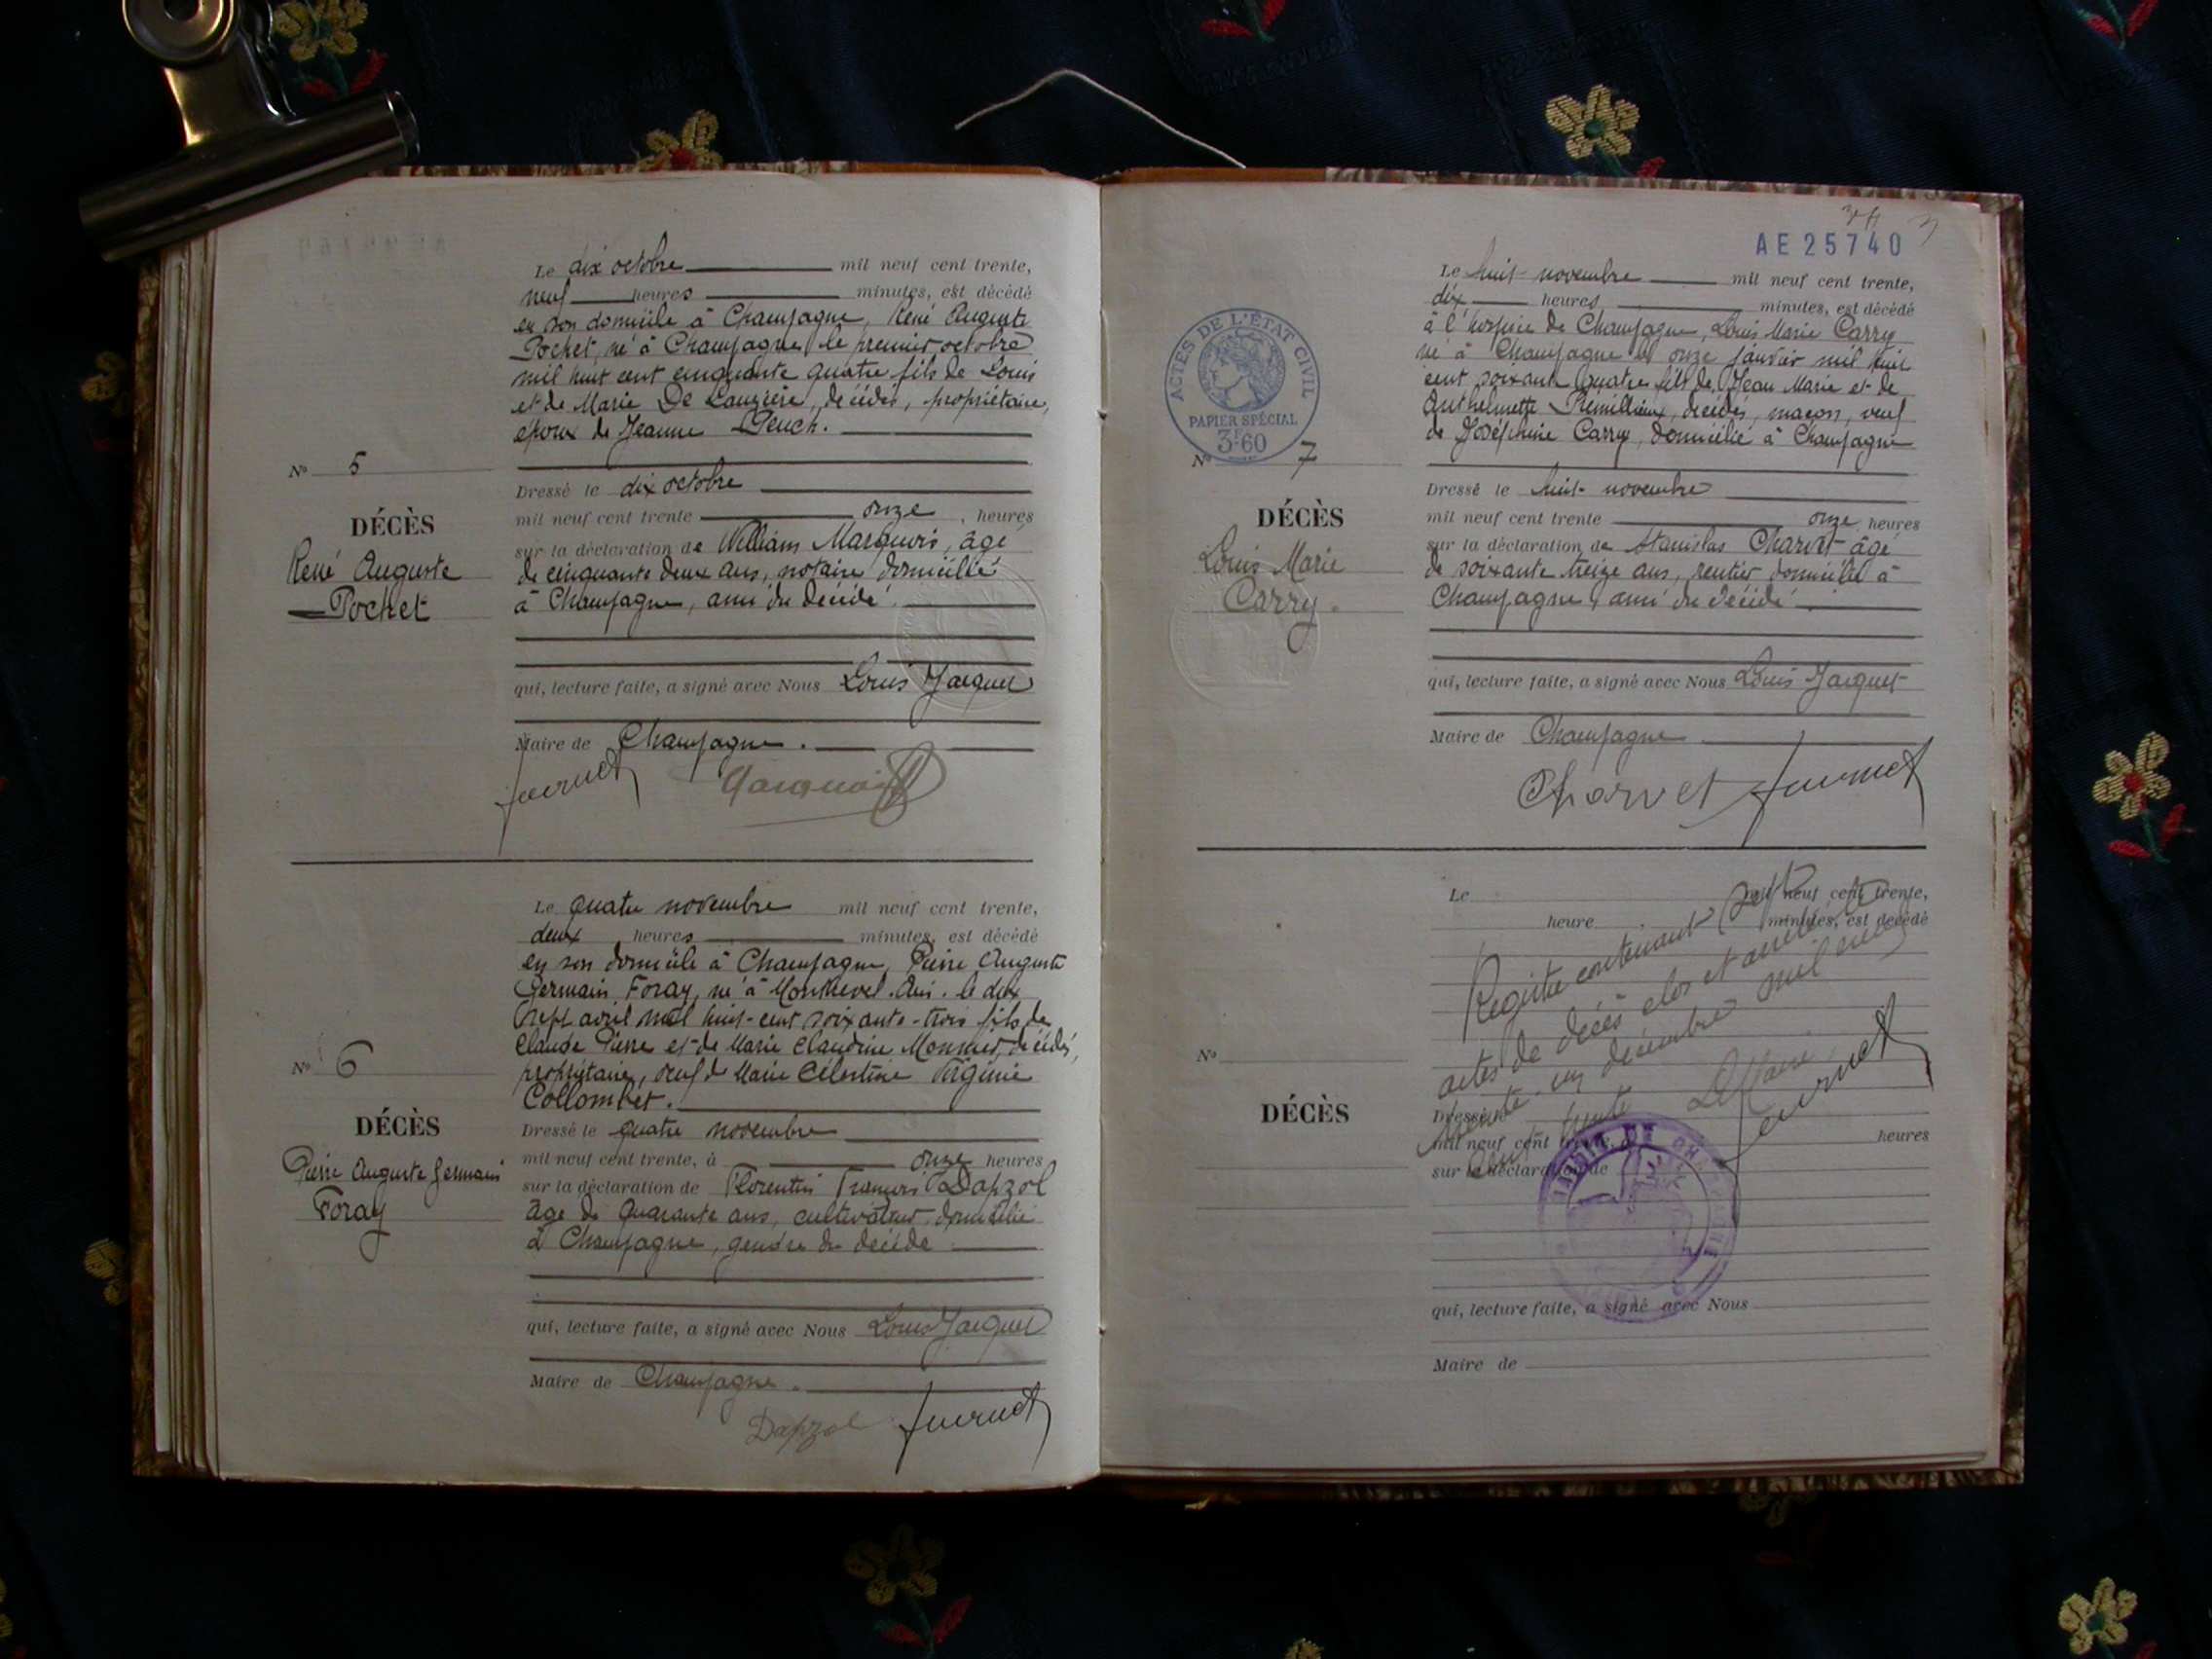 Le dix octobre mil neuf cent trente,
neuf heures minutes, est décédé
en son domicile à Champagne, René Auguste
Pochet, né à Champagne le premier octobre
mil huit cent cinquante quatre fils de Louis
et de Marie De Lauzière, décédés, propriétaire,
époux de Jeanne Peuch.
No 5
DÉCÈS
René Auguste
Pochet
Dressé le dix octobre
mil neuf cent trente onze, heures
sur la déclaration de William Marquois, âgé
de cinquante deux ans, notaire domicilié
à Champagne, ami du décédé.
qui, lecture faite, a signé avec Nous Louis Jacquet
Maire de Champagne.
Le quatre novembre mil neuf cent trente,
deux heures minutes, est décédé
en son domicile à Champagne, Pierre Auguste
Germain Foray, né à Ain. le dix
sept avril mil huit-cent soixante-trois fils de
Claude Pierre et de Marie Claudine Monnier, décédés,
propriétaire, veuf de Marie Célestine Virginie
Collombet.
No 6
DÉCÈS
Pierre Auguste Germain
Foray
Dressé le quatre novembre
mil neuf cent trente, à onze heures
sur la déclaration de Florentin François Dapzol
âgé de quarante ans, cultivateur domicilié
à Champagne, gendre du décédé
qui, lecture faite, a signé avec Nous Louis Jacquet
Maire de Champagne.
Dapzol
AE 25740
ACTES DE L'ÉTAT CIVIL
PAPIER SPÉCIAL
3F60
Le huit novembre mil neuf cent trente,
dix heures minutes, est décédé
à l'hospice de Champagne, Louis Marie Carry
né à Champagne le onze janvier mil huit
cent soixante quatre fils de Jean Marie et de
Anthelmette Rémillieux, décédés, maçon, veuf
de Joséphine Carry, domicilié à Champagne
No 7
DÉCÈS
Louis Marie
Carry.
Dressé le huit novembre
mil neuf cent trente onze heures
sur la déclaration de Stanislas Charvet âgé
de soixante treize ans, rentier domicilié à
Champagne, ami du décédé.
qui, lecture faite, a signé avec Nous Louis Jacquet
Maire de Champagne
Charvet
Le mil neuf cent trente,
heure minutes, est décédé
Registre contenant sept
actes de décès clos et arrêté le
trente un décembre mil neuf
cent trente
Le Maire,
No
DÉCÈS
Dressé le
mil neuf cent trente, à heures
sur la déclaration de
MAIRIE DE CHAMPAGNE
qui, lecture faite, a signé avec Nous
Maire de